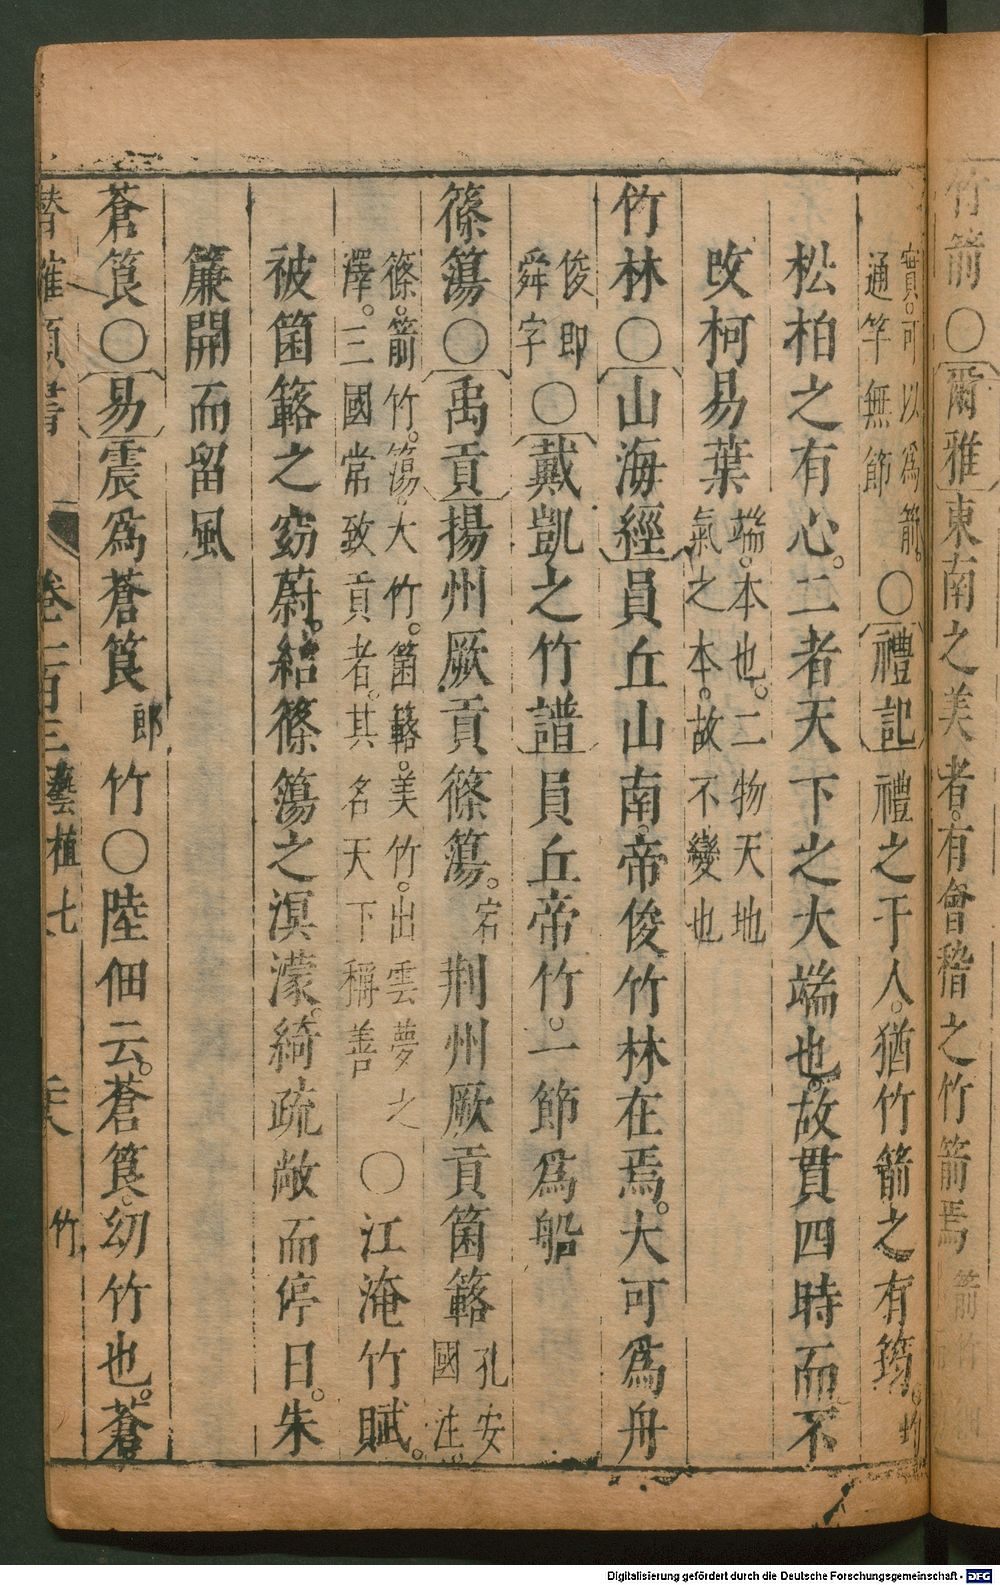 竹箭○爾雅東南之美者有會稽之竹箭焉箭竹
實可以爲箭通竿無節○禮記禮之于人猶竹箭之有筠
松柏之有心二者天下之大端也故貫四時而不
攺柯易葉端本也二物天地氣之本故不變也
竹林○山海經員丘山南帝俊竹林在焉大可爲舟
俊即舜字○戴凱之竹譜員丘帝竹一節爲船
篠簜○禹貢揚州厥貢篠簜宕荆州厥貢箘簵孔安國注
篠箭竹簜大竹箘簵美竹出雲夢之澤三國常致貢者其名天下稱善○江淹竹賦
被箘簵之窈蔚結篠簜之溟濛綺疏敞而停日朱
簾開而留風
蒼筤○易震爲蒼筤郎竹○陸佃云蒼筤幼竹也蒼
潛確類書 卷一百三藝植七 竹
Digitalisierung gefördert durch die Deutsche Forschungsgemeinschaft - DFG